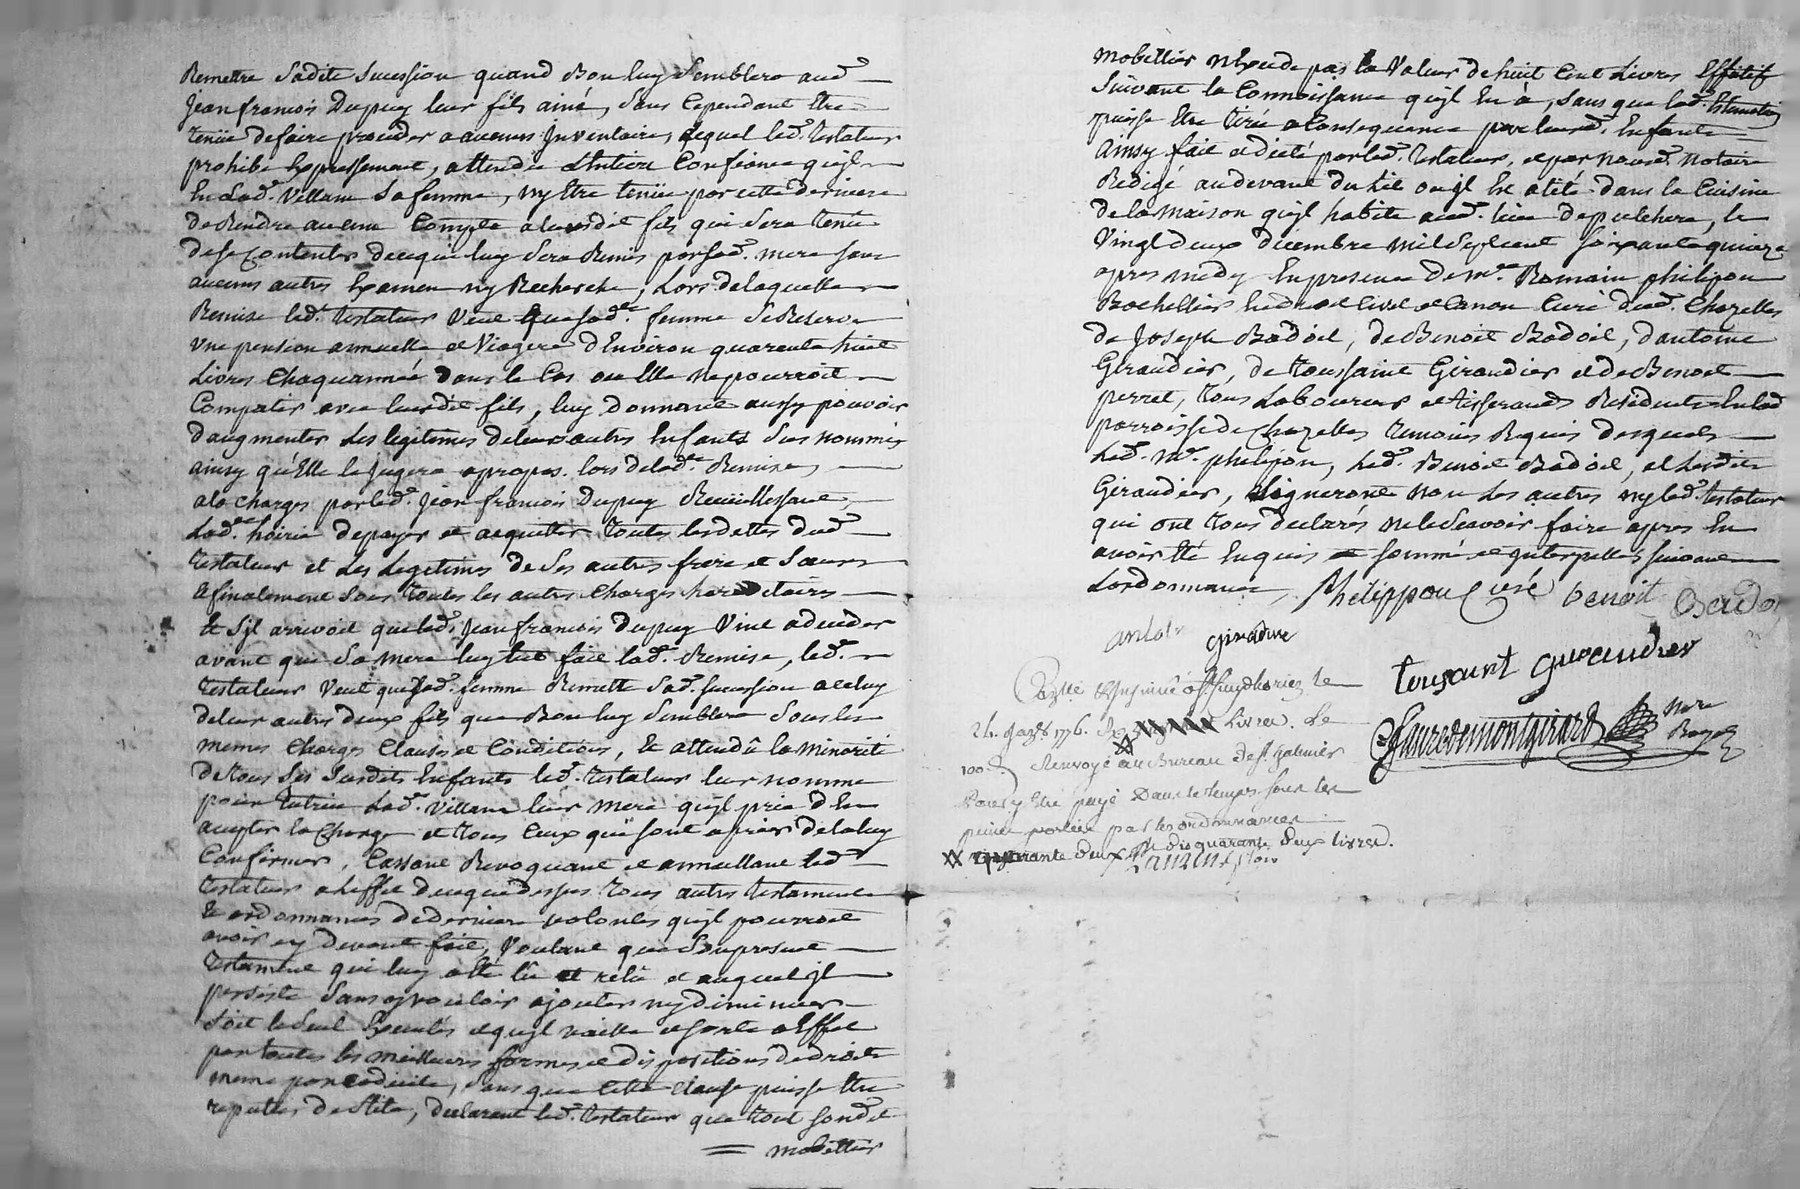 Remettre Sadite Sucession quand Bon luy Semblera aud.
jean francois Dupuy leur fils ainé, Sans Cependant Etre
tenüe de faire proceder a aucuns Inventaire, lequel led. testateur
prohibe Expressement, attendu L'entiere Confiance qu'jl
En Lad. Villam Sa femme, ny Etre tenüe par cette derniere
de Rendre aucun Compte a leurdit fils qui Sera tenu
de se Contenter de ce que luy Sera Remis par Sad. mere sans
aucuns autres Examen ny Recherche, Lors de laquelle
Remise led. testateur Veut que Sad. femme Se Reserve
Une pension annuelle et Viagere d'Environ quarante huit
Livres Chaquannée dans le Cas ou Elle ne pourroit
Compatir avec leurdit fils, luy donnant aussy pouvoir
d'augmenter Les legitimes de leurs autres Enfants Sus nommés
ainsy qu'Elle le Jugera apropos lors de lad. Remise,
a la Charges par led. Jean francois Dupuy Recüeillessant
Lad. hoirie de payer et acquitter toutes les dettes dud.
testateur et Les Legitimes de Ses autres frere et Sœurs
Et finalement Sous toutes les autres Charges hereditaires
Et S'jl arrivoit que led. Jean francois Dupuy Vint a deceder
avant que Sa mere luy Eut fait lad. Remise, led.
testateur Veut que Sad. femme Remette Sad. Sucession a celuy
de leur autres deux fils que Bon luy Semblera Sous les
memes Charges Clauses et Conditions, Et attendû la minorité
de tous Ses Susdits Enfants led. testateur leur nomme
pour tutrice Lad. Villam leur mere qu'jl prie d'En
accepter la Charge et tous Ceux qui sont a prier de la luy
Confirmer, Cassant Revoquant et annullant led.
testateur a l'effet de ce que dessus tous autres testaments
Et ordonnances de derniere volontés qu'jl pourroit
avoir cy devant fait, Voulant que Son present
testament qui luy a eté lû et relû et auquel jl
persiste Sans y vouloir ajouter ny diminuer
Soit le Seul Executés et qu'jl vaille et Sorte a Effet
par toutes les meilleures formes et dispositions de droit
meme par Codicile, Sans que cette clause puisse Etre
reputées de Stile, declarant led. testateur que tout Son d.
mobillier
mobillier n'Excede pas la Valeur de huit Cent Livres Effectif
Suivant la Connoissance qu'jl En a, Sans que lad. Estimation
puisse Etre tirée a Consequence par leursd. Enfants
Ainsy fait et dicté par led. testateur, et par nousd. Notaire
Redigé au devant du Lit ou jl En a été dans la Cuisine
de la maison qu'jl habite aud. lieu de pulchera, le
Vingt deux décembre mil Sept cent soixante quinze
apres midy En presence de mr. Romain philipon
Bachellier En droit Civil et Canon Curé dud. Chazelles
de Joseph Badoil, de Benoit Badoil, d'antoine
Giraudier, de toussaint Giraudier et de Benoit
perret, tous Laboureur et tisserands Residents En lad.
parroisse de Chazelles temoins Requis desquels
Led. Mr. philipon, Led. Benoit Badoil, et Lesdits
Giraudier, Signeront non Les autres ny led. testateur
qui ont tous declarés ne le Scavoir faire apres En
avoir Eté Enquis et Sommé et Interpellés suivant
L'ordonnance, Philippon Curé benoit Badoi
antoi giraudie
tousaint giraudier
Faure de montgirard Nore Royal
Con.llé & Insinué a St Simphorien le
24. Janv. 1776. livres. Le
100.d Renvoyé au Bureau de St. galmier
Pour y Etre payé Dans le temps sous les
peines portées par les ordonnances
quarante deux livres.